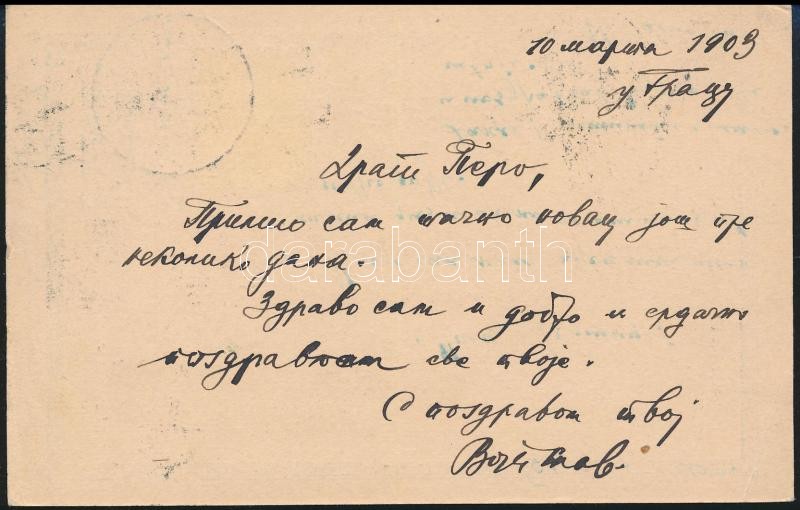 10 марта 1903
у Грацу
Драги Перо,
Примио сам тачно новац још пре
неколико дана.
Здраво сам и добро и срдачно
поздрављам све твоје.
С поздравом твој
darabanth